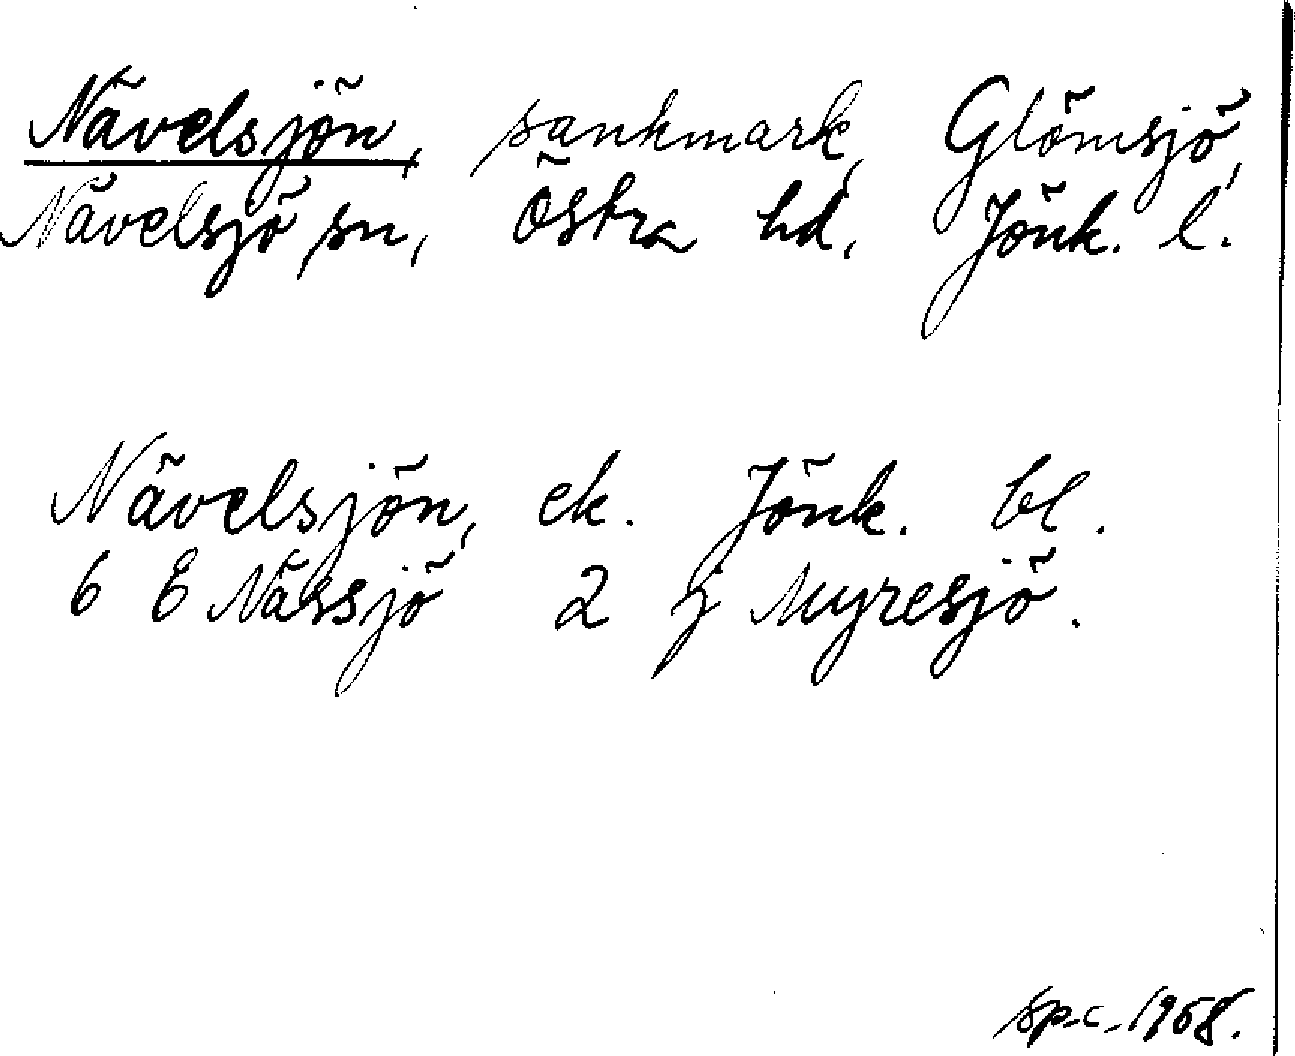 Nävelsjön, sankmark, Glömsjö,
Nävelsjö sn, Östra hd, Jönk. l.
Nävelsjön, ek. Jönk. bl.
6 E Nässjö 2 j Myresjö.
sp.c. 1968.